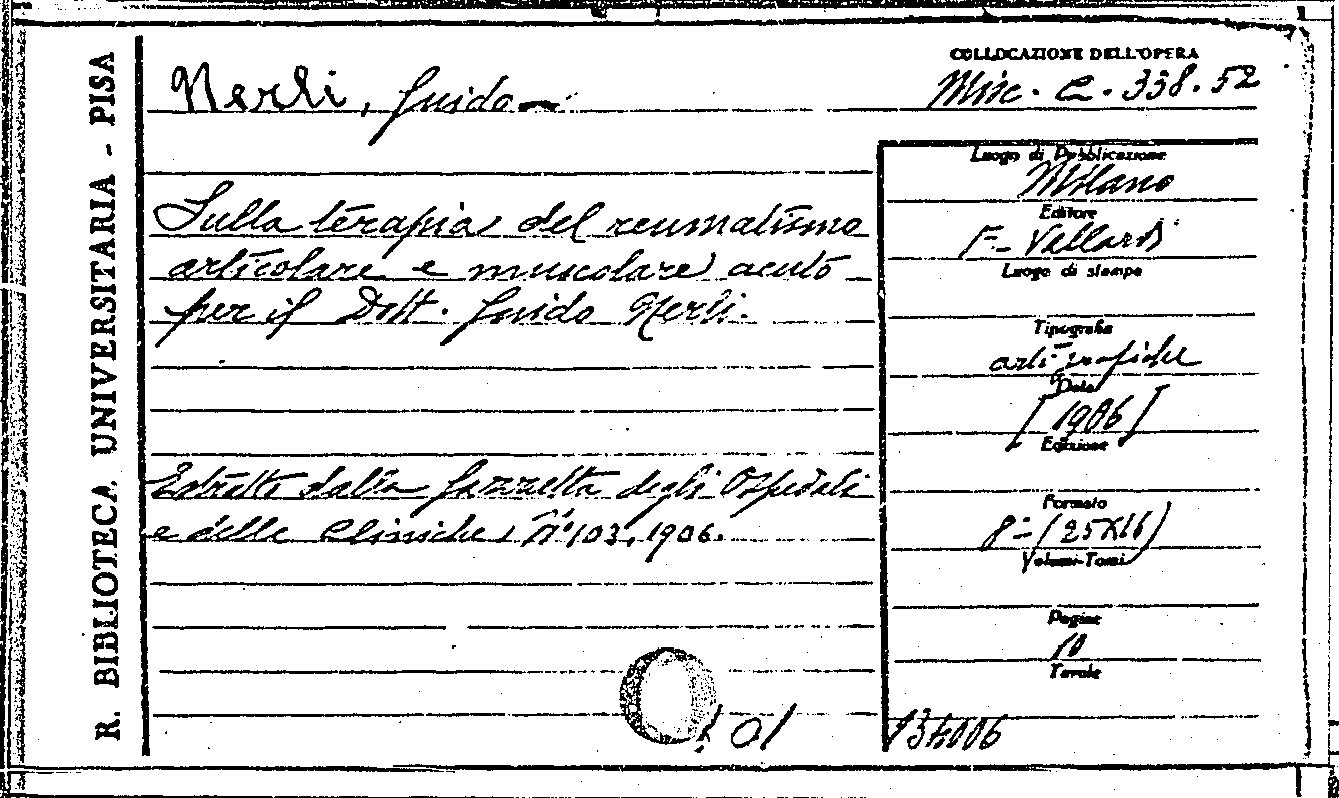 R. BIBLIOTECA UNIVERSITARIA - PISA
Nerli, Guido
COLLOCAZIONE DELL'OPERA
Misc. C. 338.52
Sulla terapia del reumatismo
articolare e muscolare acuto
per il Dott. Guido Nerli.
Estratto dalla Gazzetta degli Ospedali
e delle Cliniche, N° 103, 1906.
Luogo di Pubblicazione
Milano
Editore
F. Vallardi
Luogo di stampa
Tipografia
arti grafiche
Data
[1906]
Edizione
Formato
8° (25X16)
Volumi-Tomi
Pagine
10
Tavole
101
134006